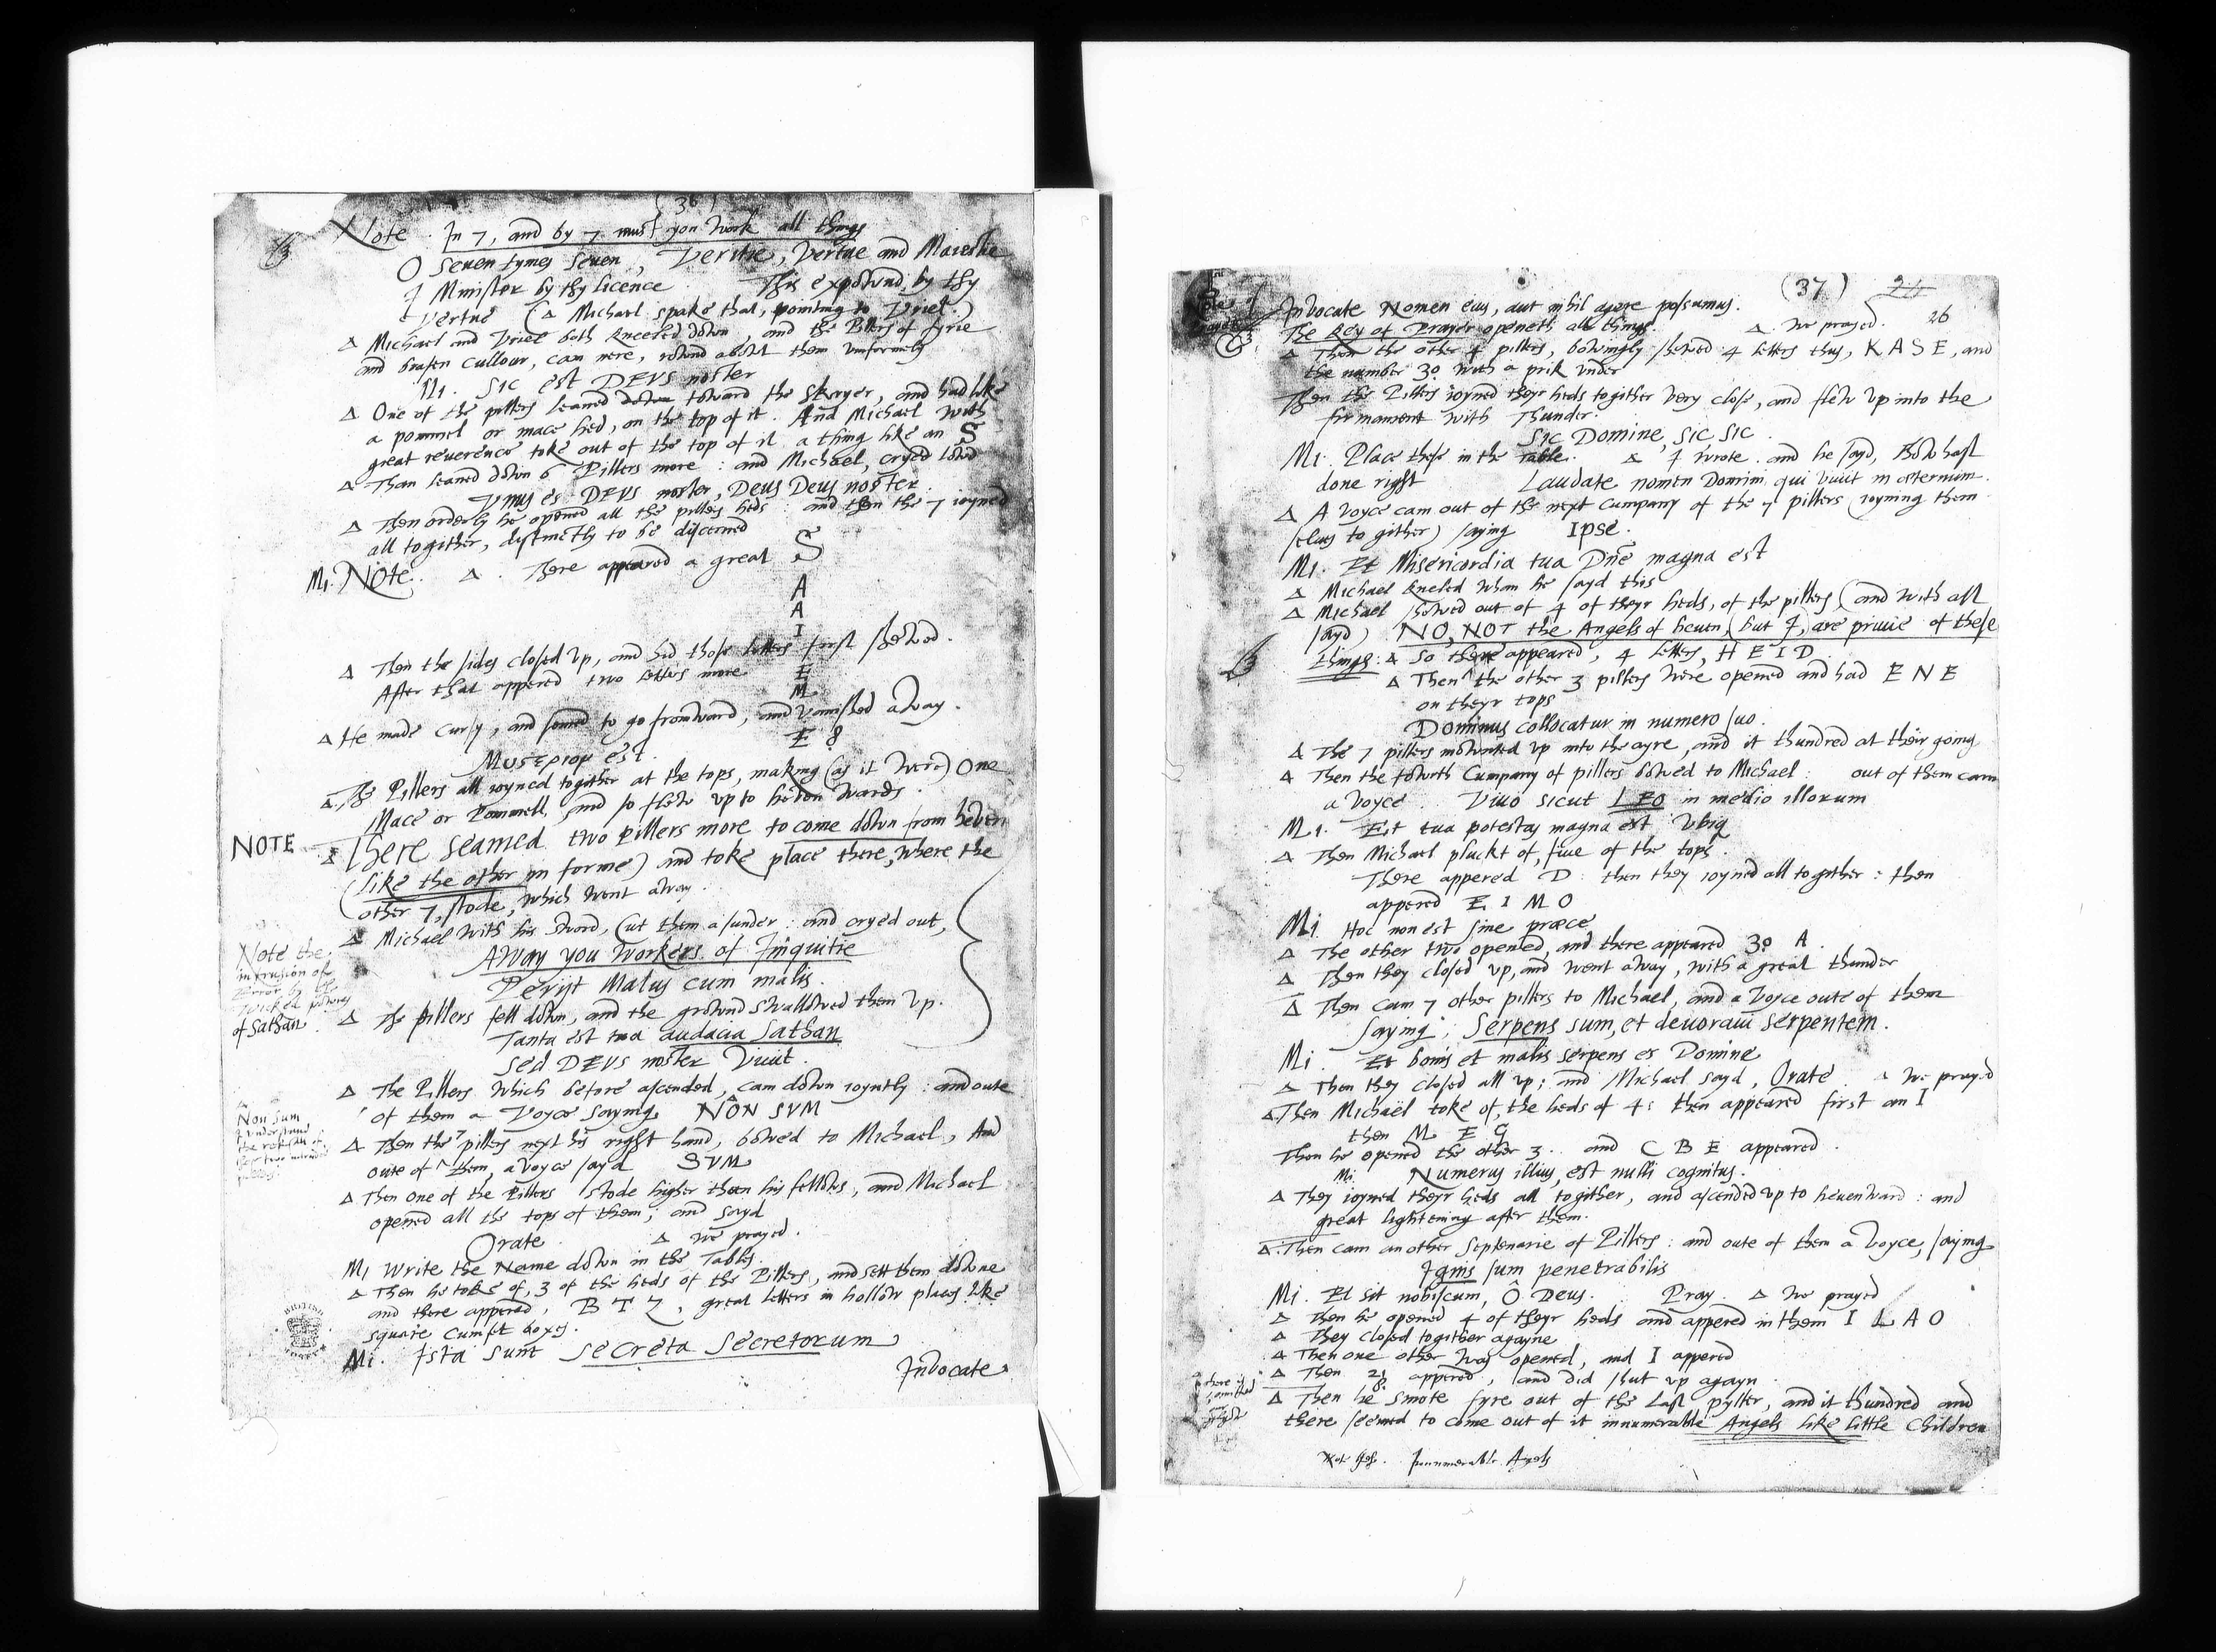 (36)
Note. In 7, and by 7 must you work all things
O Seven tymes Seven, Veritie, vertue and Maiestie
I Minister by thy licence. This expownd, by thy
Vertue (Δ Michael spake that, pointing to Uriel.)
Δ Michael and Uriel both kneeled down, and the Pillers of fyrie
and brasen cullour, cam nere, rownd abowt them uniformely
Mi. Sic est DEUS noster
Δ One of the pillers leaned toward the Skryer, and had like
a pommel or mace hed, on the top of it. And Michael with
great reverence toke out of the top of it a thing like an S
Δ Than leaned down 6 Pillers more: and Michael, cryed lowd
Vnus es DEVS noster, Deus Deus noster.
Δ Then orderly he opened all the pillers heds: and then the 7 ioyned
all togither, distinctly to be discerned
Mi. Note. Δ. There appeared a great S
A
A
I
Δ Then the sides closed up, and hid those letters first shewed.
After that appered two letters more E
M
Δ He made cursy, and semed to go fromward, and vanished away.
E 8
Mysterium est.
Δ. The Pillers all ioyned togither at the tops, making (as it were) One
Mace or Pommell, and so flew up to heven wards.
NOTE
Δ There seamed two pillers more to come down from heven
(like the other in forme) and toke place there, where the
other 7, stode, which went away.
Δ Michael with his sword, Cut them asunder: and cryed out,
Away you workers of Iniquitie
Perijt Malus cum malis.
Note the
intrusion of
Error by the
wicked powres
of Sathan.
Δ The pillers fell down, and the grownd swallowed them up.
Tanta est tua audacia Sathan
sed DEVS noster Vivit.
Δ The Pillers which before ascended, cam down ioyntly: and oute
of them a Voyce saying NON SVM
Δ
Non sum
I understand
the refusall of
these two intruded
pillers.
Δ Then the 7 pillers next his right hand, bowed to Michael, And
oute of them, a voyce sayd SVM
Δ Then one of the Pillers stode higher then his fellows, and Michael
opened all the tops of them; and sayd
Orate. Δ We prayed.
Mi Write the Name down in the Tables.
Δ Then he toke of, 3 of the heds of the Pillers, and sett them downe
and there appered, B T Z, great letters in hollow places like
square cumfet boxes.
Mi. Ista sunt secreta Secretorum
Invocate
(37) 24
26
Invocate Nomen eius, aut nihil agere possumus.
The key of Prayer openeth all things. Δ. We prayed.
Δ Then the other 4 pillers, bowingly shewed 4 letters thus, K A S E, and
the number 30 with a prik under
Then the Pillers ioyned theyr heds togither very close, and flew up into the
firmament with Thunder.
Sic Domine, sic sic.
Mi. Place these in the Table. Δ I wrote. and he sayd, Thow hast
done right Laudate nomen Domini, qui vivit in æternum.
Δ A voyce cam out of the next Cumpany of the 7 pillers (ioyning them
selves to gither) saying Ipse.
Mi. Et Misericordia tua Dne magna est
Δ Michael kneled whan he sayd this
Δ Michael shewed out of 4 of theyr heds, of the pillers (and with all
sayd) NO, NOT the Angels of heven, (but I,) are privie of these
things: Δ So there appeared, 4 letters, H E I D
Δ Then the other 3 pillers were opened and had E N E
on theyr tops
Dominus collocatur in numero suo.
Δ The 7 pillers mownted up into the ayre, and it thundred at their going
Δ Then the fowrth Cumpany of pillers bowed to Michael: out of them cam
a voyce. Vivo sicut LEO in medio illorum
Mi. Et tua potestas magna est Ubiq
Δ Then Michael pluckt of, five of the tops.
There appered D: then they ioyned all togither: then
appered E I M O
Mi Hoc non est sine præce
Δ The other two opened, and there appeared 30 A.
Δ Then they closed up, and went away, with a great thunder
Δ Then cam 7 other pillers to Michael, and a voyce oute of them
saying, Serpens sum, et devoravi serpentem.
Mi. Et bonis et malis serpens es Domine
Δ Then they closed all up; and Michael sayd, Orate. Δ We prayed
Δ Then Michaël toke of, the heds of 4: then appeared first an I
then M E G
Then he opened the other 3.. and C B E appeared.
Mi. Numerus illius, est nulli cognitus.
Δ They ioyned theyr heds all togither, and ascended up to hevenward: and
great lightening after them.
Δ. Then cam an other Septenarie of Pillers: and oute of them a Voyce, saying
Ignis sum penetrabilis
Mi. Et sit nobiscum, Ô Deus. Pray. Δ We prayed
Δ Then he opened 4 of theyr heds and appered in them I L A O
Δ They closed togither agayne
Δ Then one other was opened, and I appered
Δ Then 21 appered, and did shut up agayn
8
Δ Then he smote fyre out of the last pyller, and it thundred and
there semed to come out of it innumerable Angels like little Children
Innumerable Angels